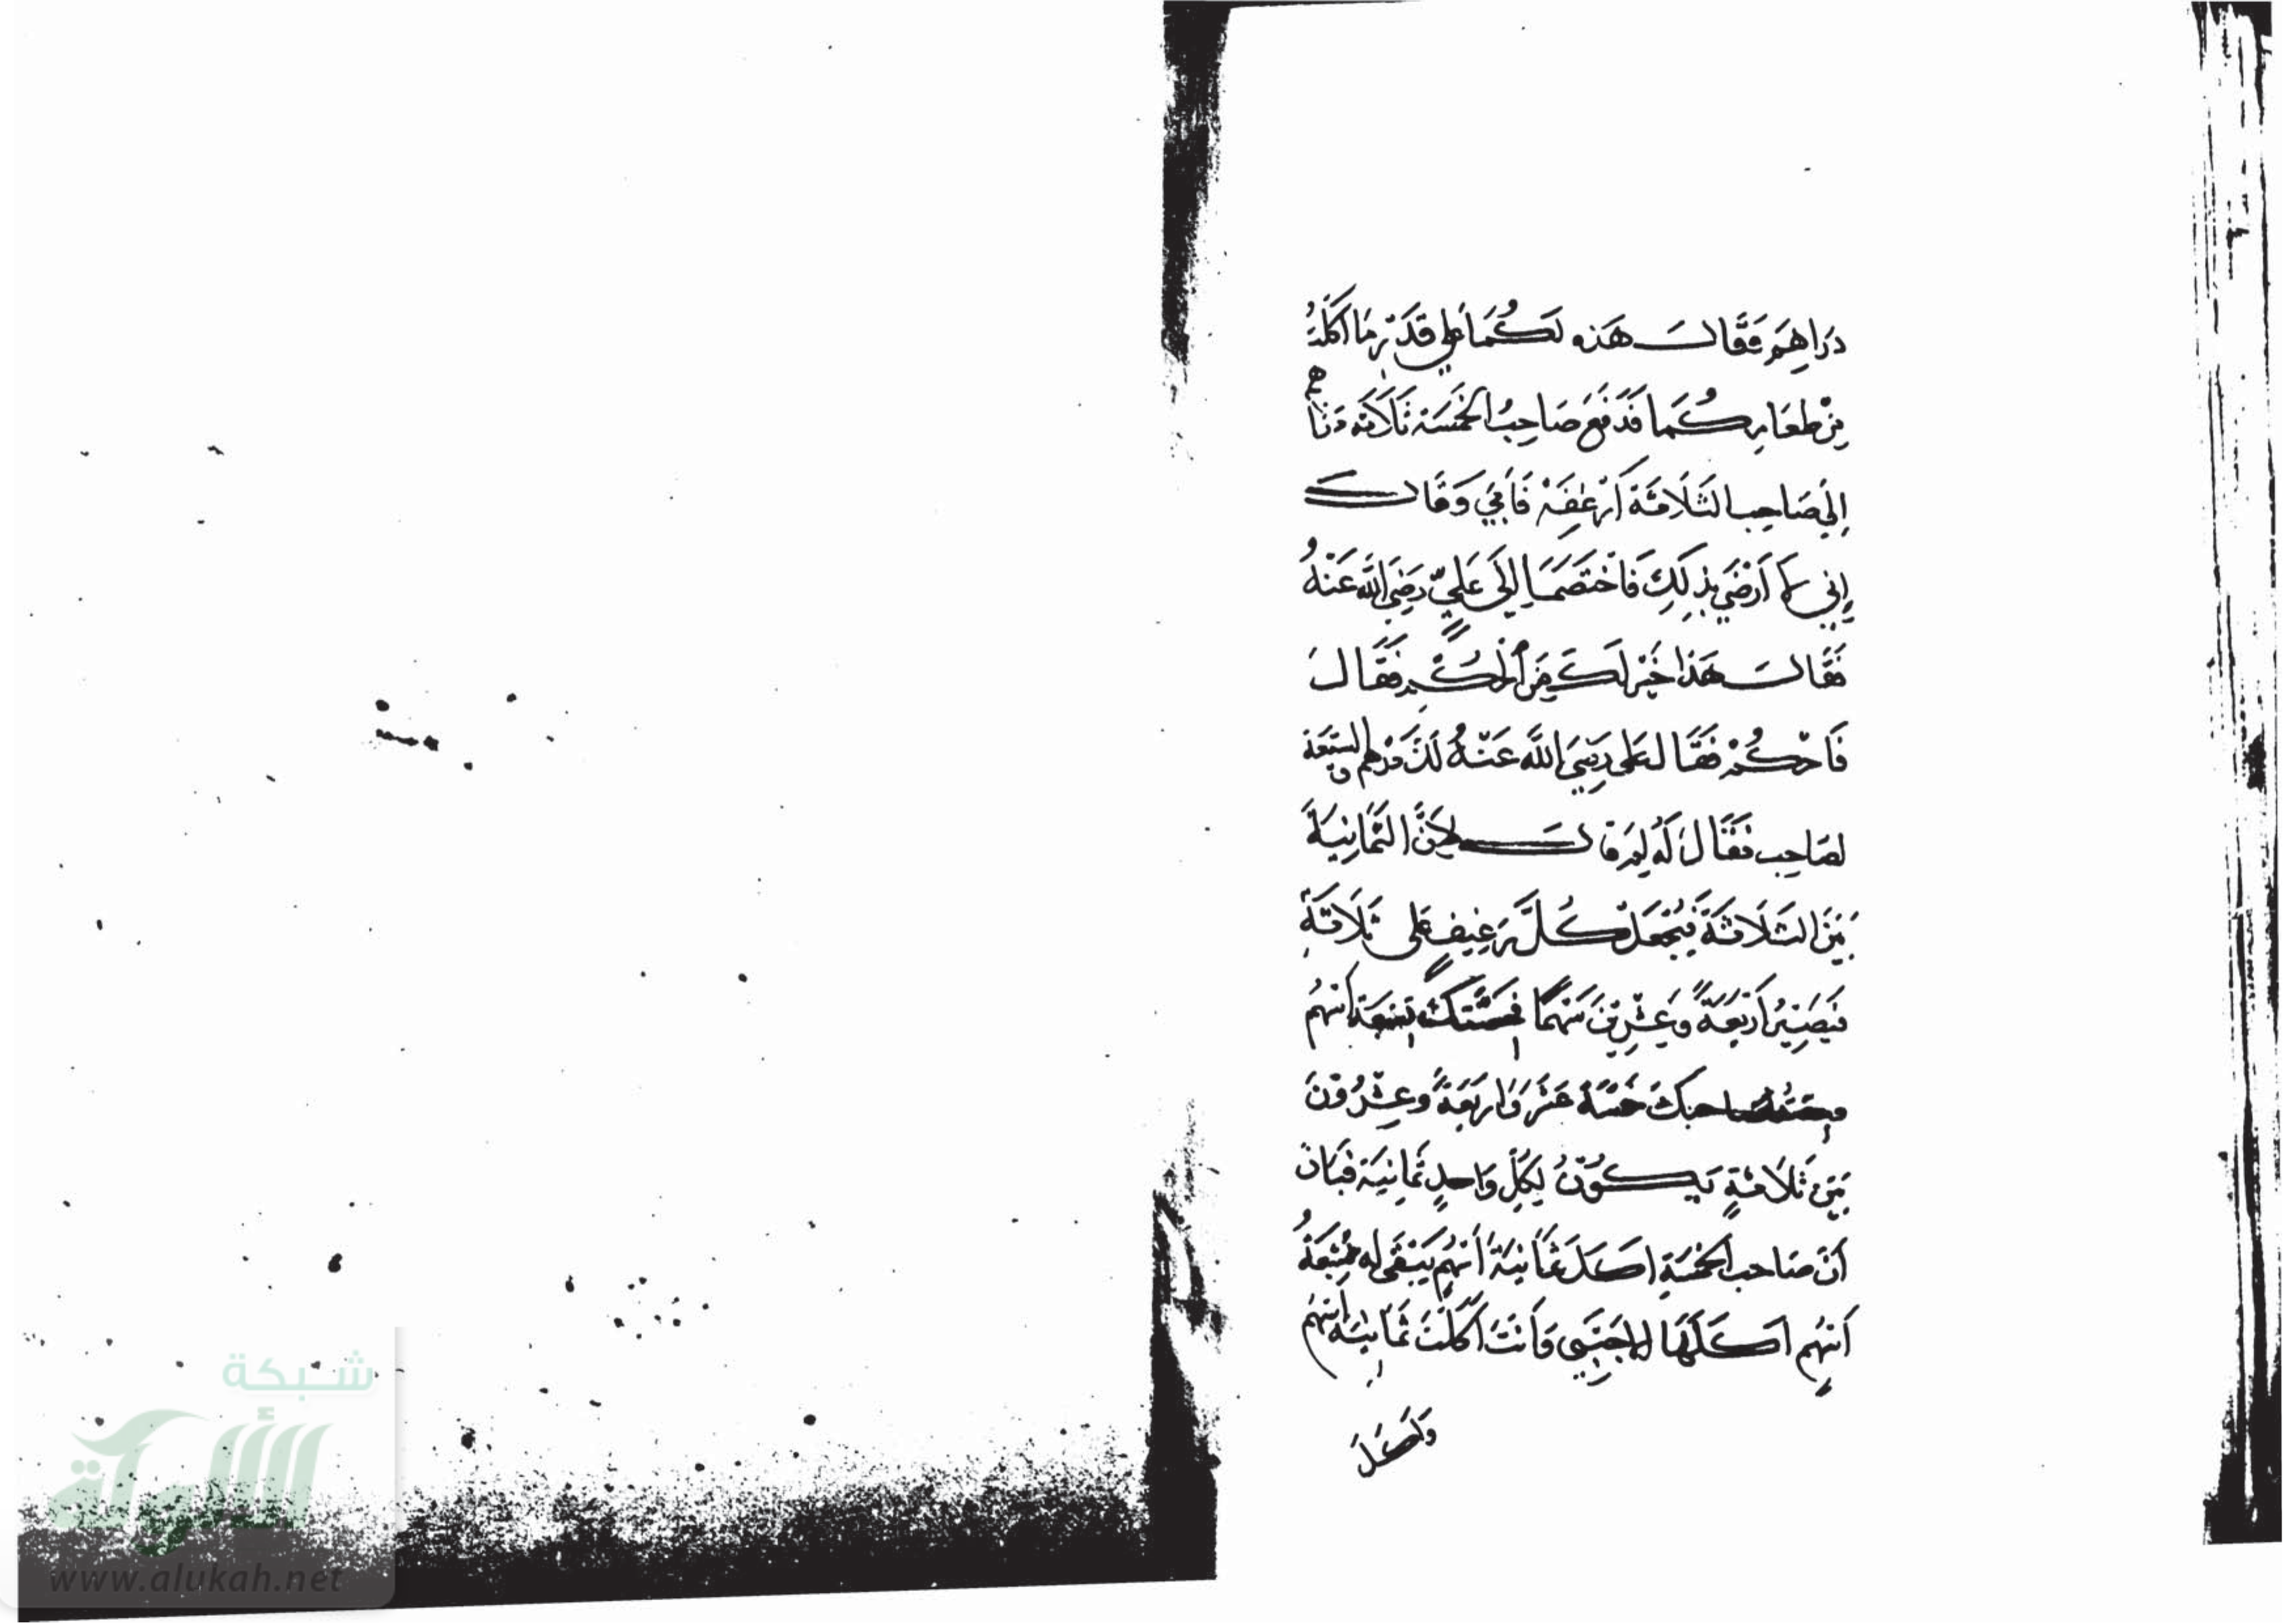 دَرَاهِمَ فَقَالَ هَذِه لَكُمَا عَلي قَدَرِ مَا اَكَلْتُ
مِنْ طَعَامِكُمَا فَدَفَعَ صَاحِبُ الخَمْسَة ثَلَاثَه دَرَاهم
اِلَي صَاحِب الثَلَاثَةَ اَرْغِفَة فَاَبَي وَقَالَ
اِنِي لَا اَرْضَي بِذَلِكَ فَاخْتَصَمَا اِلَي عَلِيّ رَضِيَ اللَّه عَنْهُ
فَقَالَ هَذَا خَيْر لَكَ مِنَ الْحُكْمِ فَقَالَ
فَاحْكُمْ فَقَالَ عَلي رَضِيَ اللَّه عَنْهُ لَكَ دِرْهم والسَّبْعَة
لصَاحِبِ فَقَالَ لَهُ لِمَ قَالَ لِاَنَّ الثَمَانِيَةَ
بَيْنَ الثَلَاثَةَ فَيُجْعَل كُلَّ رَغِيف عَلي ثَلَاثَةِ
فَيَصِيْرُ اَرْبَعَةً وَعِشْرِيْنَ سَهْمًا تِسْعَة اَسْهُم
صَاحبكَ خَمْسَةَ عَشَر وَاَرْبَعَةً وَعِشْرُوْنَ
بَيْن ثَلَاثَةٍ يَكُوْنُ لِكُلِّ وَاحِدٍ ثَمَانِيَة فَبَانَ
اَنَّ صَاحب الخَمْسَةِ اَكَلَ ثَمَانِيَةَ اَسْهُمٍ يَبْقَي له سَبْعَةُ
اَسْهُمٍ اَكَلَهَا الاَجْنَبِي وَاَنْتَ اَكَلْتَ ثَمَانِيَة اَسْهُم
وَاَكَلَ
شبكة
الألوكة
www.alukah.net